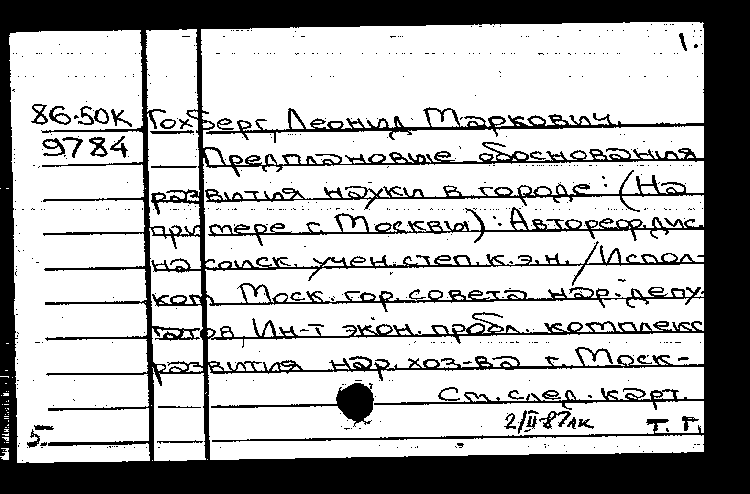 1.
86.50к Гохберг, Леонид Маркович.
9784 Предплановые обоснования
развития науки в городе: (На
примере г. Москвы): Автореф. дис.
на соиск. учен. степ. к.э.н. / Испол-
ком Моск. гор. совета нар. депу-
татов, Ин-т экон. пробл. комплекс.
развития нар. хоз-ва г. Моск-
См. след. карт.
2/II-87лк Т. Г.
5.